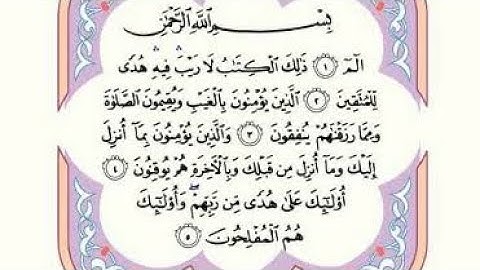 بِسْمِ اللَّهِ الرَّحْمَٰنِ
الٓمٓ ١ ذَٰلِكَ الْكِتَابُ لَا رَيْبَ ۛ فِيهِ ۛ هُدًى
لِلْمُتَّقِينَ ٢ الَّذِينَ يُؤْمِنُونَ بِالْغَيْبِ وَيُقِيمُونَ الصَّلَوٰةَ
وَمِمَّا رَزَقْنَٰهُمْ يُنفِقُونَ ٣ وَالَّذِينَ يُؤْمِنُونَ بِمَآ أُنزِلَ
إِلَيْكَ وَمَآ أُنزِلَ مِن قَبْلِكَ وَبِالْآخِرَةِ هُمْ يُوقِنُونَ ٤
أُو۟لَٰٓئِكَ عَلَىٰ هُدًى مِّن رَّبِّهِمْ ۖ وَأُو۟لَٰٓئِكَ
هُمُ الْمُفْلِحُونَ ٥